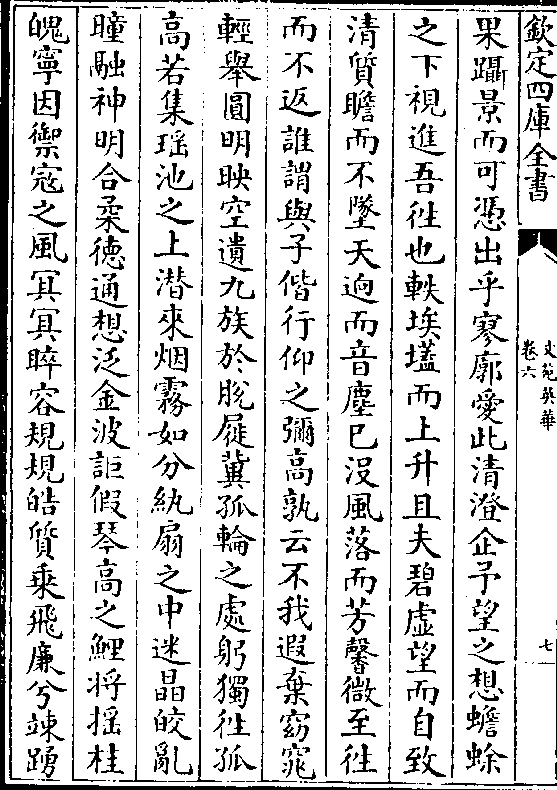 欽定四庫全書
文苑英華
卷六
七
果躡景而可憑出乎寥廓愛此清澄企予望之想蟾蜍
之下視進吾徃也軼埃壒而上升且夫碧虚望而自致
清質瞻而不墜天逈而音塵已沒風落而芳馨微至徃
而不返誰謂與子偕行仰之彌高孰云不我遐棄窈窕
輕舉圓明映空遺九族於脫屣冀孤輪之處躬獨徃孤
高若集瑶池之上潜來烟霧如分紈扇之中迷晶皎亂
曈融神明合柔德通想泛金波詎假琴高之鯉将揺桂
魄寧因禦寇之風冥冥睟容規規皓質乗飛廉兮竦踴